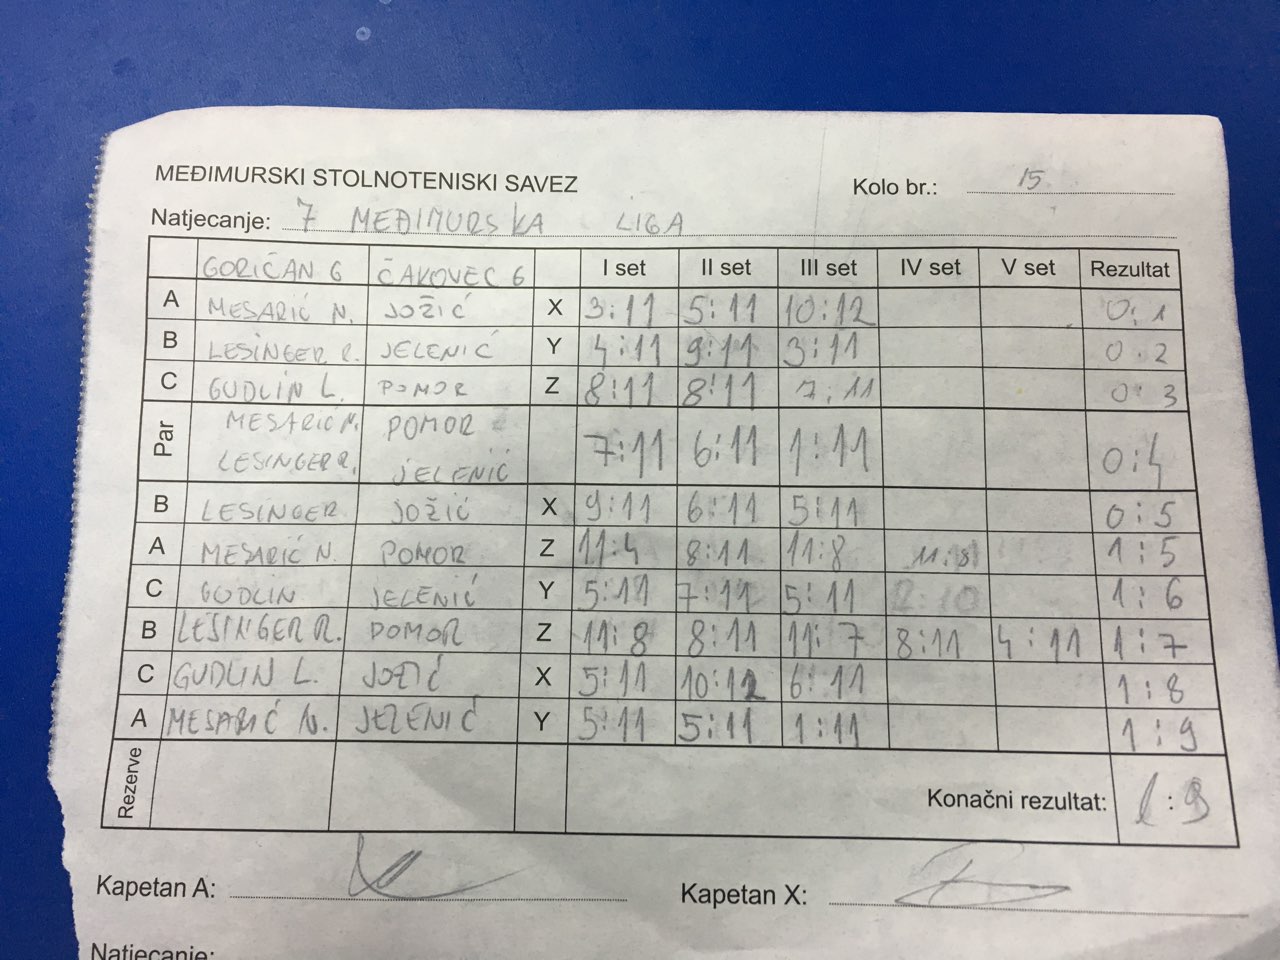 MEĐIMURSKI STOLNOTENISKI SAVEZ
Kolo br.: 15
Natjecanje: 7 MEĐIMURSKA LIGA
GORIČAN 6 ČAKOVEC 6 I set II set III set IV set V set Rezultat
A MESARIĆ N. JOŽIĆ X 3:11 5:11 10:12 0:1
B LESINGER R. JELENIĆ Y 4:11 9:11 3:11 0:2
C GUDLIN L. POMOR Z 8:11 8:11 7:11 0:3
Par MESARIĆ N. POMOR 7:11 6:11 1:11 0:4
LESINGER R. JELENIĆ
B LESINGER JOŽIĆ X 9:11 6:11 5:11 0:5
A MESARIĆ N. POMOR Z 11:4 8:11 11:8 11:8 1:5
C GUDLIN JELENIĆ Y 5:11 7:11 5:11 1:6
B LESINGER R. POMOR Z 11:8 8:11 11:7 8:11 4:11 1:7
C GUDLIN L. JOŽIĆ X 5:11 10:12 6:11 1:8
A MESARIĆ N. JELENIĆ Y 5:11 5:11 1:11 1:9
Rezerve Konačni rezultat: 1:9
Kapetan A:
Kapetan X:
Natjecanje: